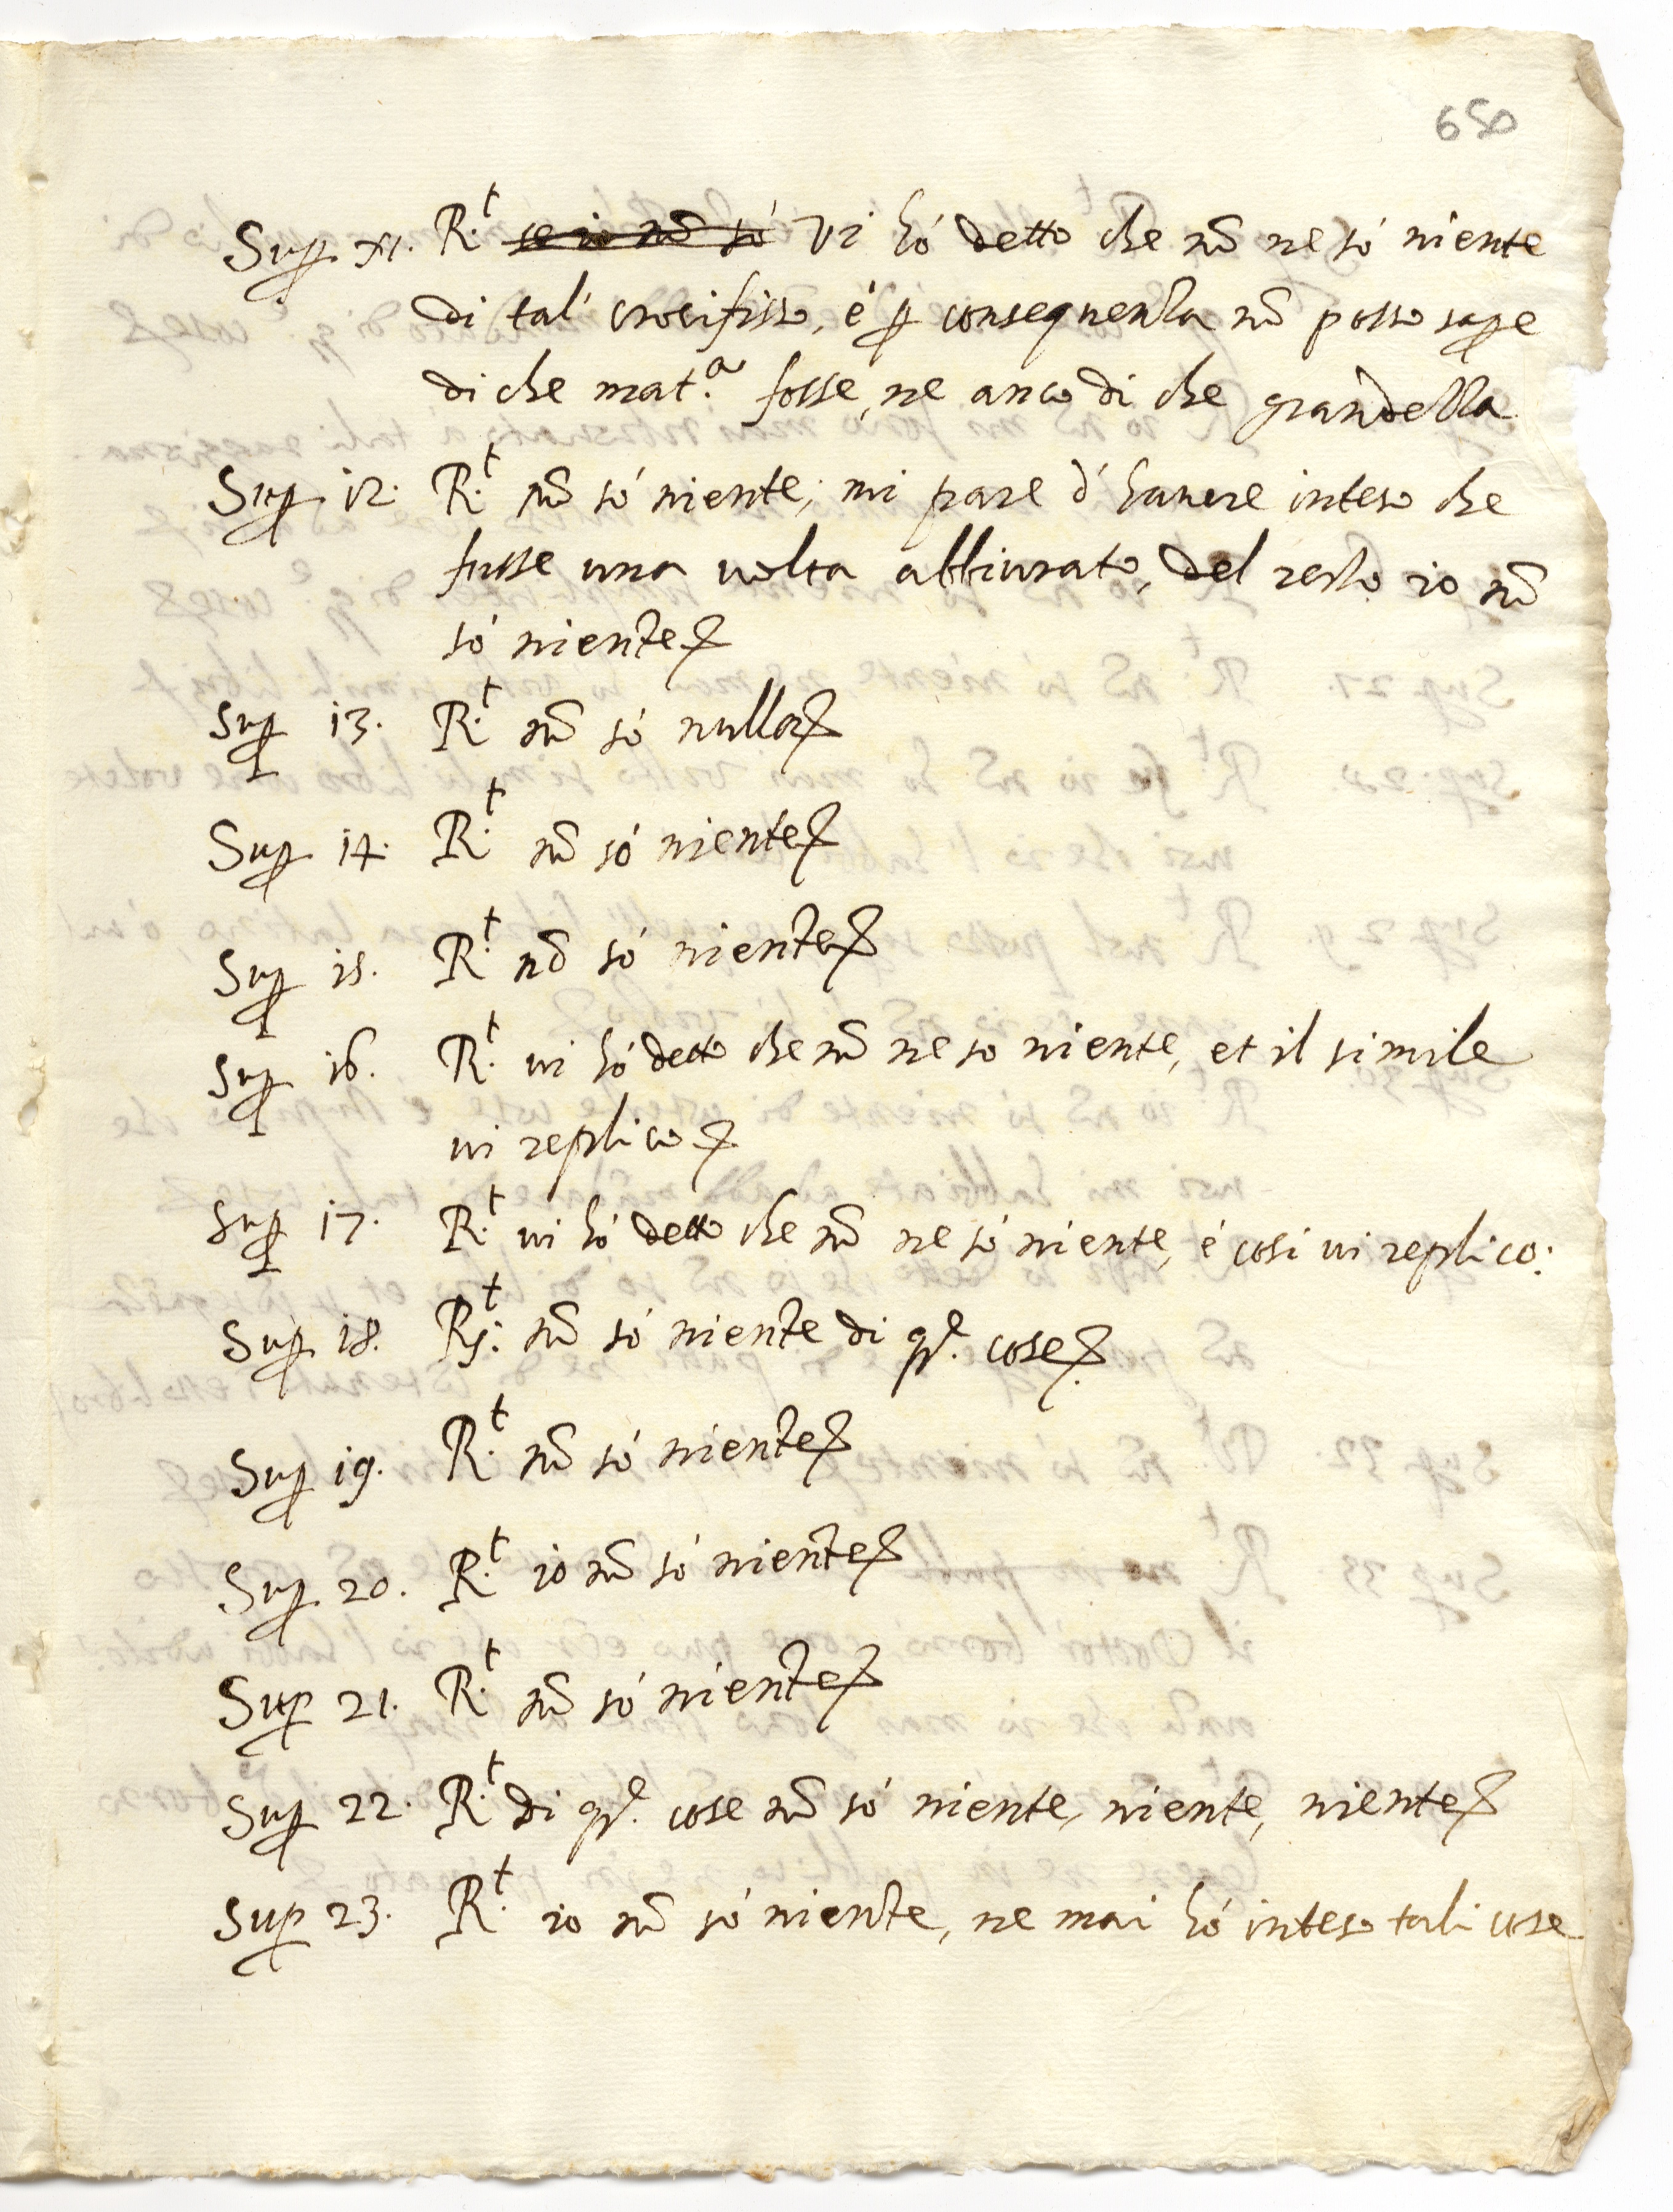 650
Sup. xi. R.t se io nõ só Vi hó detto che nõ ne só niente
di tal' crocifisso, é ꝑ consequenza nõ posso saꝑe
di che mat.a fosse, ne anco di che grandezza
Suꝑ 12. R.t nõ só niente; mi pare d' hauere inteso che
fusse una uolta abbiurato, del resto io nõ
só niente
Suꝑ 13. R.t nõ só nulla
Suꝑ 14. R.t nõ só niente
Suꝑ 15. R.t nõ só niente
Suꝑ 16. R.t ui hó detto che nõ ne so niente, et il simile
ui replico
Suꝑ 17. R.t ui hó detto che nõ ne só niente, é cosi ui replico:
Suꝑ 18. R.t nõ só niente di q.e cose
Suꝑ 19. R.t nõ só niente
Suꝑ 20. R.t io nõ só niente
Sup 21. R.t nõ só niente
Suꝑ 22. R.t di q.e cose nõ só niente, niente, niente
Sup 23. R.t io nõ só niente, ne mai hó inteso tali cose